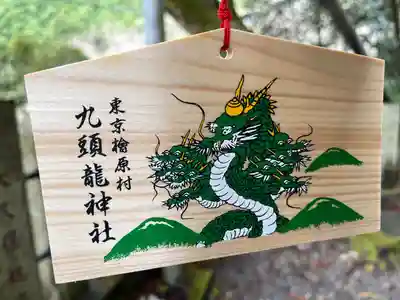 東京檜原村
九頭龍神社